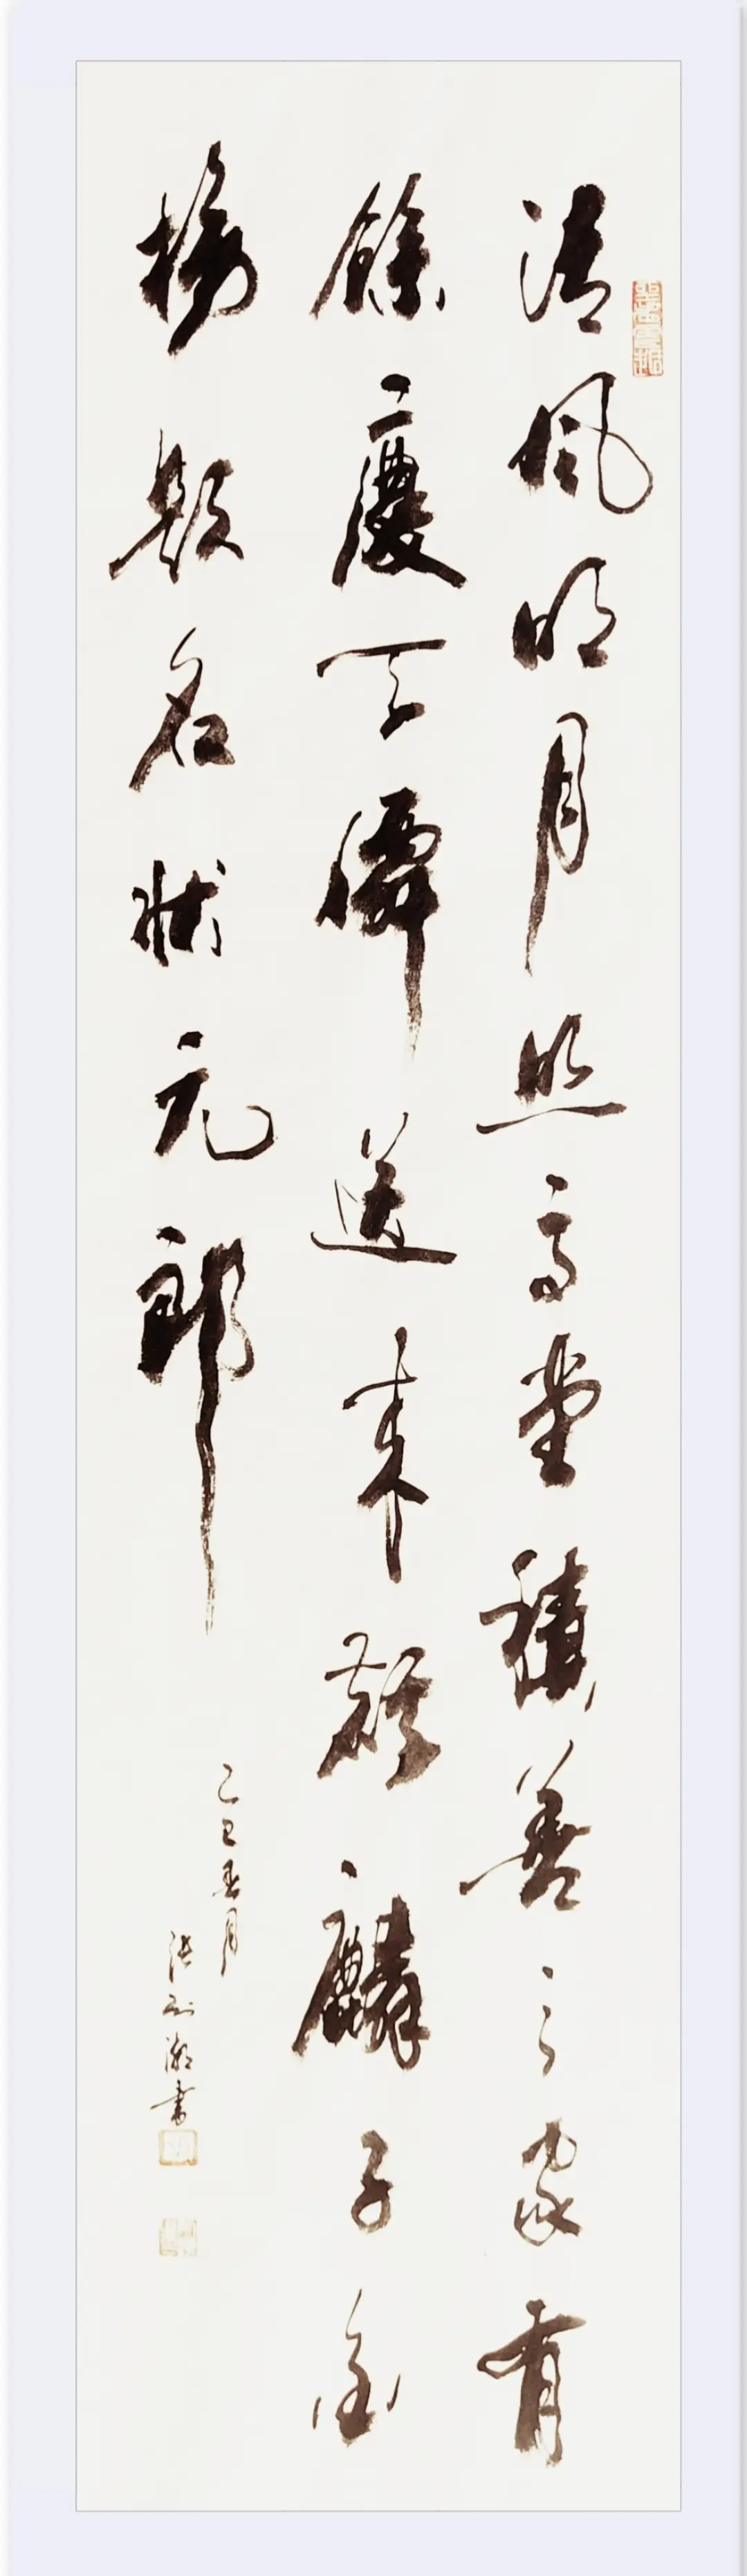 清風明月照高堂積善之家有
餘慶天降送來麒麟子金
榜題名狀元郎
乙巳春月
書